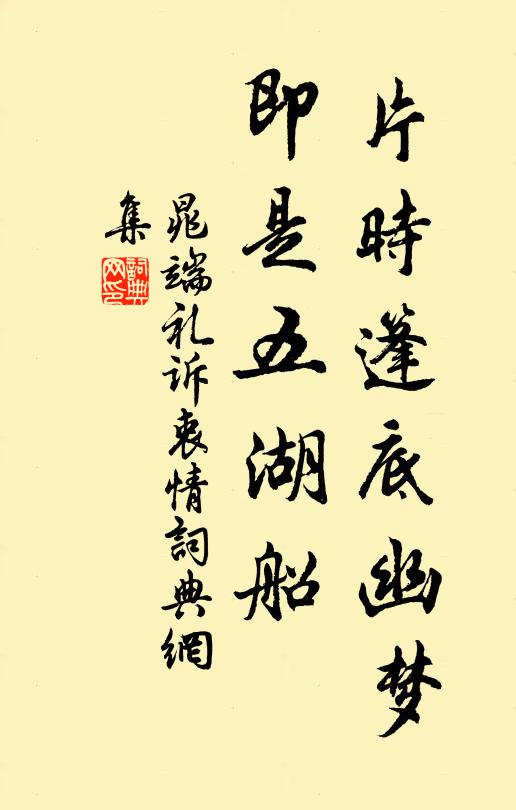 片時篷底幽梦
即是五湖船
晁端礼訴衷情詞典網
集
詞典
网印